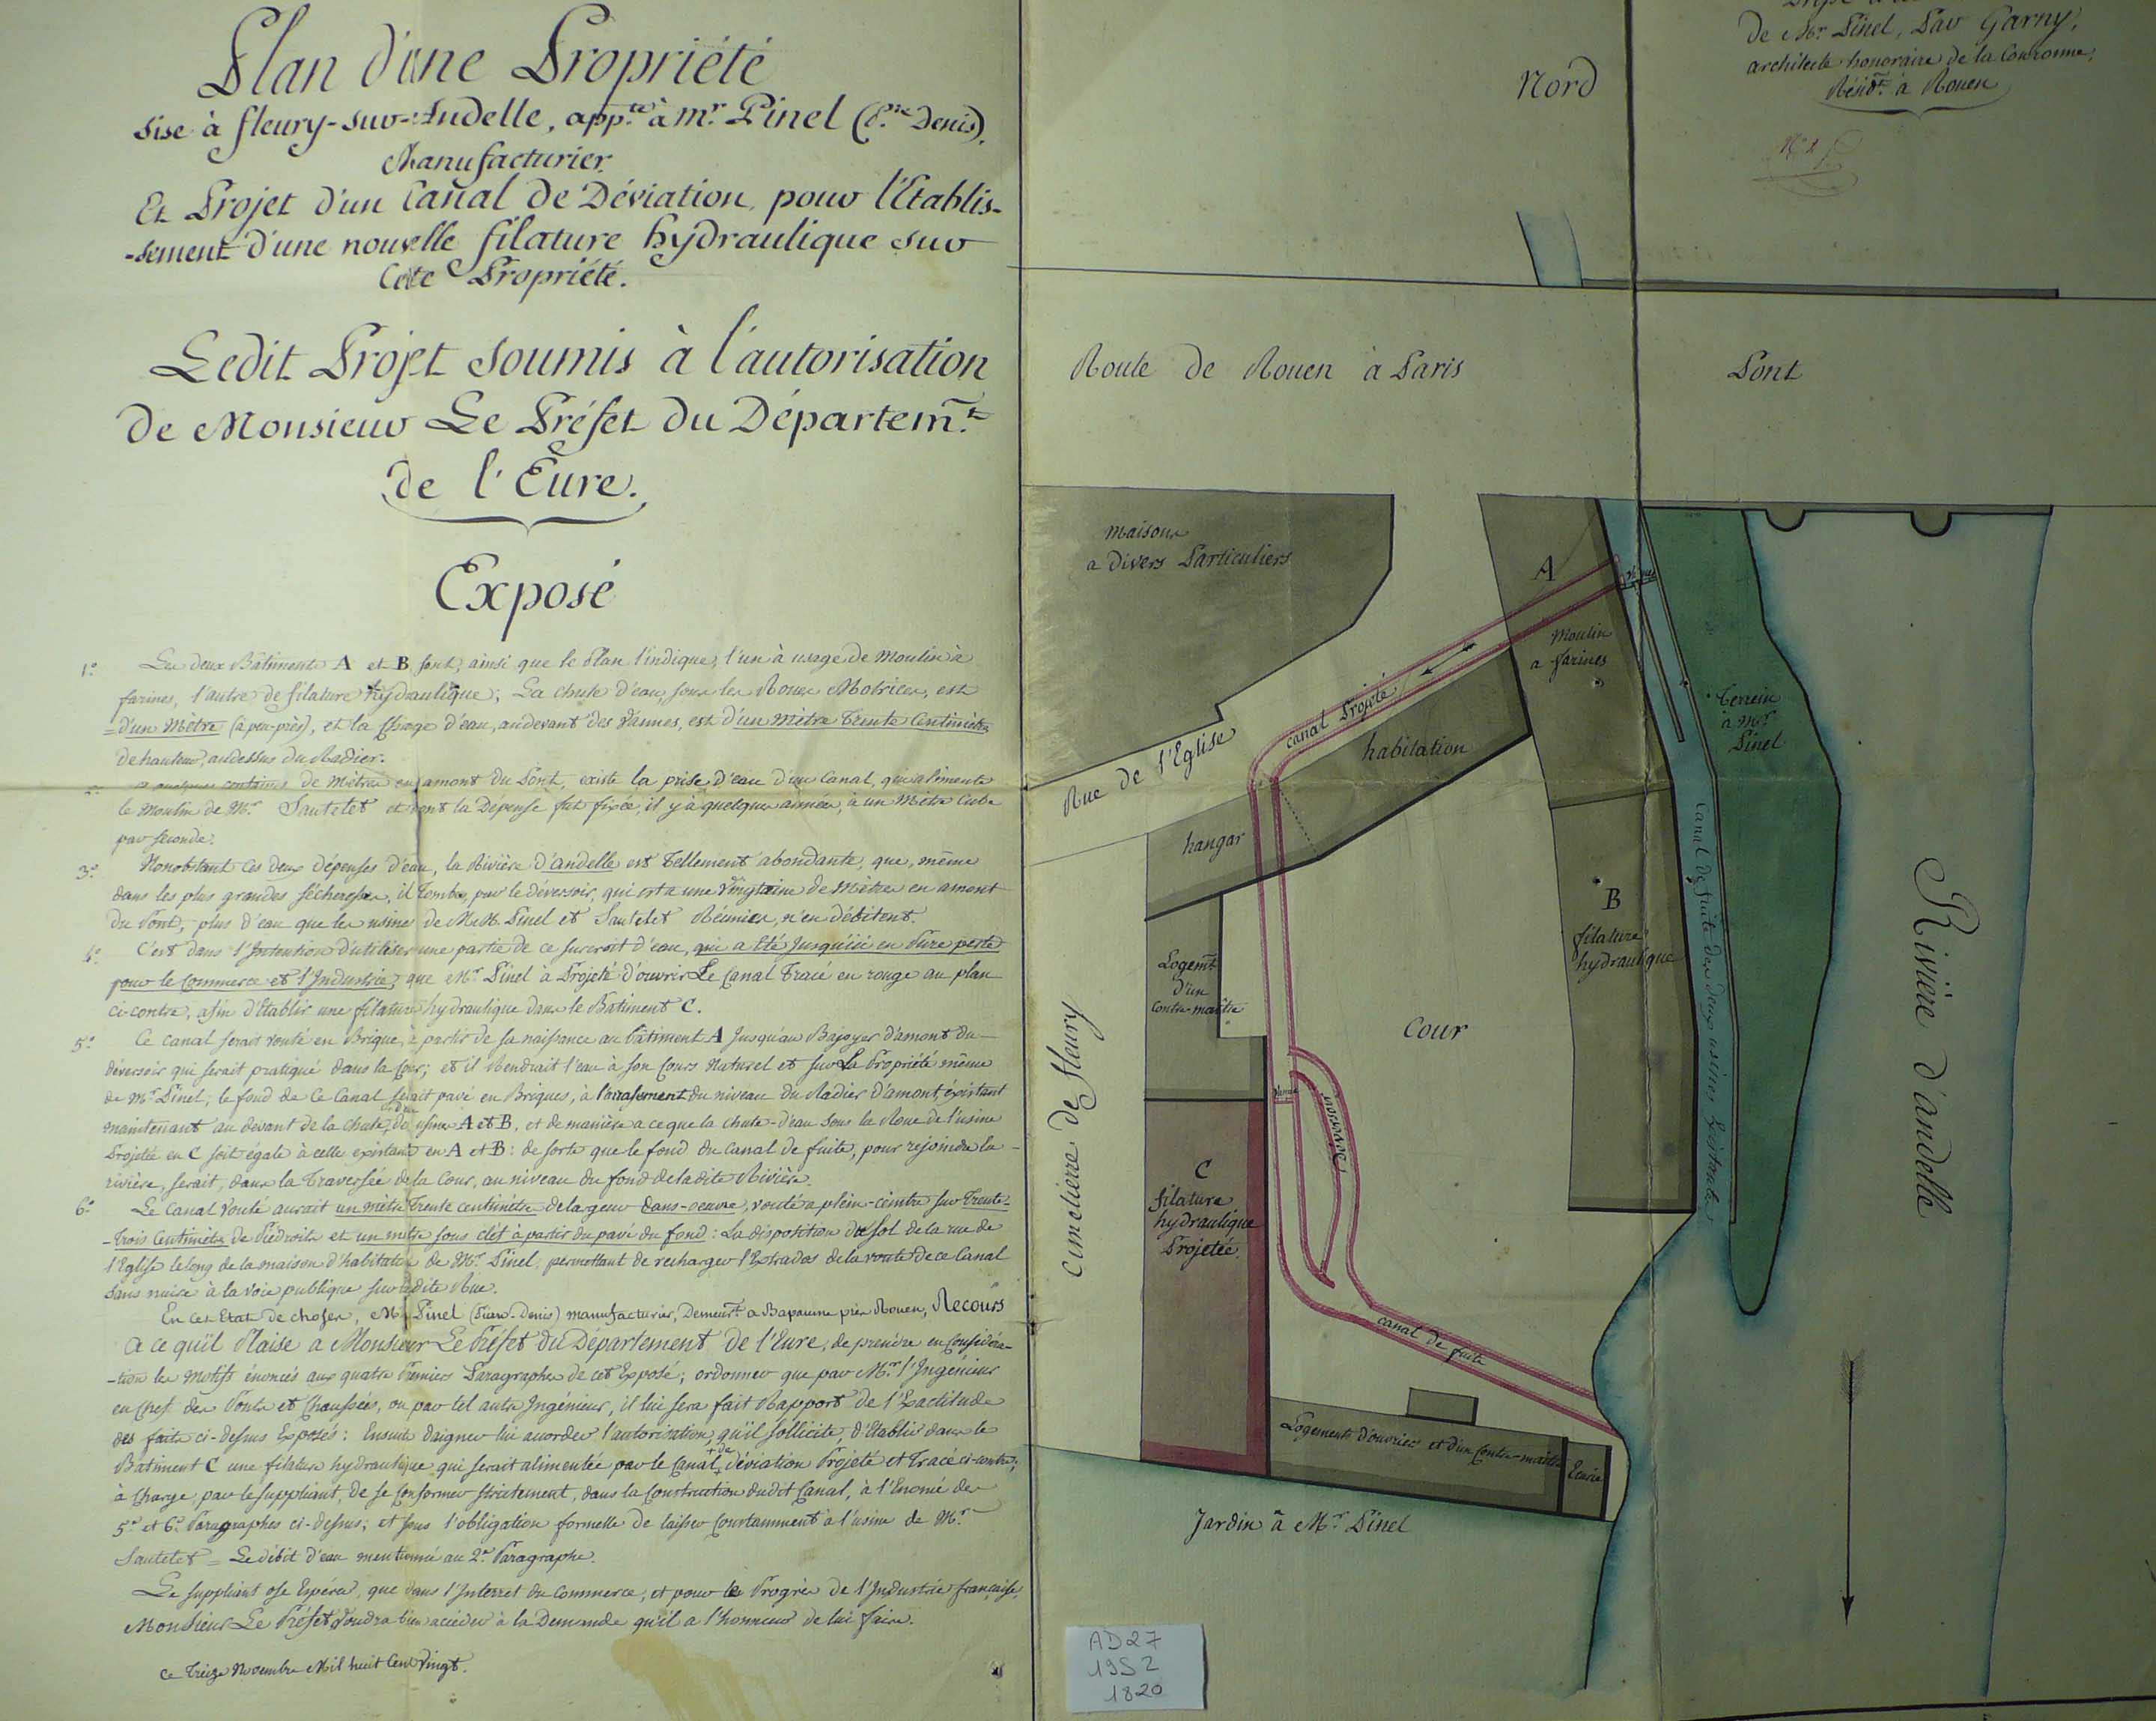 Plan d'une Propriété
sise à fleury-sur-Andelle, app.te à m.r Pinel (P.re Denis),
Manufacturier.
Et Projet d'un Canal de Déviation, pour l'Etablis-
-sement d'une nouvelle filature hydraulique sur
Cette Propriété.
Ledit Projet soumis à l'autorisation
de Monsieur Le Préfet du Départem.t
de l'Eure.
Exposé
1.o Les deux Bâtiments A et B sont, ainsi que le Plan l'indique, l'un à usage de Moulin à
farines, l'autre de filature hydraulique; La chute d'eau, sous les Roues Motrices, est
d'un Mètre (à peu-près), et la charge d'eau, au devant des Vannes, est d'un mètre trente Centimètres
de hauteur, au dessus du Radier.
2.o A quelques centaines de Mètres en amont du Pont, existe la prise d'eau d'un Canal, qui alimente
le Moulin de M.r Sautelet et dont la Dépense fut fixée, il y à quelques années, à un Mètre Cube
par Seconde.
3.o Nonobstant ces deux dépenses d'eau, la Rivière d'andelle est tellement abondante, que, même
dans les plus grandes sécheresses, il tombe, par le déversoir, qui est a une Vingtaine de Mètres en amont
du Pont, plus d'eau que les usines de M.M. Pinel et Sautelet Réunies, n'en débitent.
4.o C'est dans l'Intention d'utiliser une partie de ce surcroit d'eau, qui a Eté Jusqu'ici en Pure perte
pour le Commerce et l'Industrie, que M.r Pinel à Projeté d'ouvrir Le Canal Tracé en rouge au plan
ci-contre, afin d'Etablir une filature hydraulique dans le Bâtiment C.
5.o Ce Canal serait Vouté en Brique, à partir de sa naissance au bâtiment A Jusqu'au Bajoyer d'amont du
déversoir qui serait pratiqué dans la Cour; et il Rendrait l'eau à son Cours Naturel et sur La Propriété même
de M.r Pinel; le fond de Ce Canal serait pavé en Briques, à l'arrasement du niveau du Radier d'amont, éxistant
maintenant au devant de la chute des usines A et B, et de manière a ce que la chute-d'eau sous la Roue de l'usine
Projetée en C soit égale à celle existante en A et B: de sorte que le fond du Canal de fuite, pour rejoindre la
rivière, serait, dans la Traversée de la Cour, au niveau du fond de ladite Rivière.
6.o Le Canal Vouté aurait un mètre Trente centimètres de largeur dans-oeuvre, vouté a plein-ceintre sur Trente-
-trois Centimètres de Piédroits et un mètre sous clef à partir du pavé du fond: La disposition du Sol de la rue de
l'Eglise le long de la maison d'habitation de M.r Pinel, permettant de recharger l'Extrados de la voute de ce Canal
sans nuire à la voie publique sur ladite Rue.
En cet Etat de choses, M.r Pinel (Pierre-Denis) manufacturier, Demeur.t a Bapaume près Rouen, Recours
à ce qu'il Plaise a Monsieur Le Préfet du Département de l'Eure, de prendre en Considéra-
-tion les motifs énoncés aux quatre Premiers Paragraphes de cet Exposé; ordonner que par M.r l'Ingénieur
en Chef des Ponts et Chaussées, ou par tel autre Ingénieur, il lui sera fait Rapport de l'Exactitude
des faits ci-dessus Exposés: Ensuite daigner lui accorder l'autorisation qu'il sollicite, d'Etablir dans le
Bâtiment C une filature hydraulique qui serait alimentée par le Canal de déviation Projeté et Tracé ci-contre;
à Charge, par le suppliant, de se Conformer strictement, dans la Construction dudit Canal, à l'Enoncé des
5.e et 6.e Paragraphes ci-dessus; et sous l'obligation formelle de laisser Constamment à l'usine de M.r
Sautelet = Le débit d'eau mentionné au 2.e Paragraphe.
Le suppliant ose Espérer, que dans l'Interret du Commerce, et pour les Progrès de l'Industrie française,
Monsieur Le Préfet Voudra bien accéder à la Demande qu'il a l'honneur de lui faire.
Ce Treize Novembre Mil huit Cent Vingt.
de M.r Pinel, Par Garny,
architecte honoraire de la Couronne,
Résid.t à Rouen
Nord
Route de Rouen à Paris
Pont
maisons
a divers Particuliers
A
Moulin
a farines
Terrein
à M.r
Pinel
canal Projeté
habitation
Rue de l'Eglise
hangar
B
filature
hydraulique
Canal de fuite des deux usines Existantes
Rivière d'andelle
Logem.t
d'un
Contre-maître
Cour
Cimetierre de fleury
Vanne
Déversoir
C
filature
hydraulique
Projetée
canal de fuite
Logements d'ouvriers et d'un Contre-maitre
Ecurie
Jardin à M.r Pinel
AD27
19S2
1820